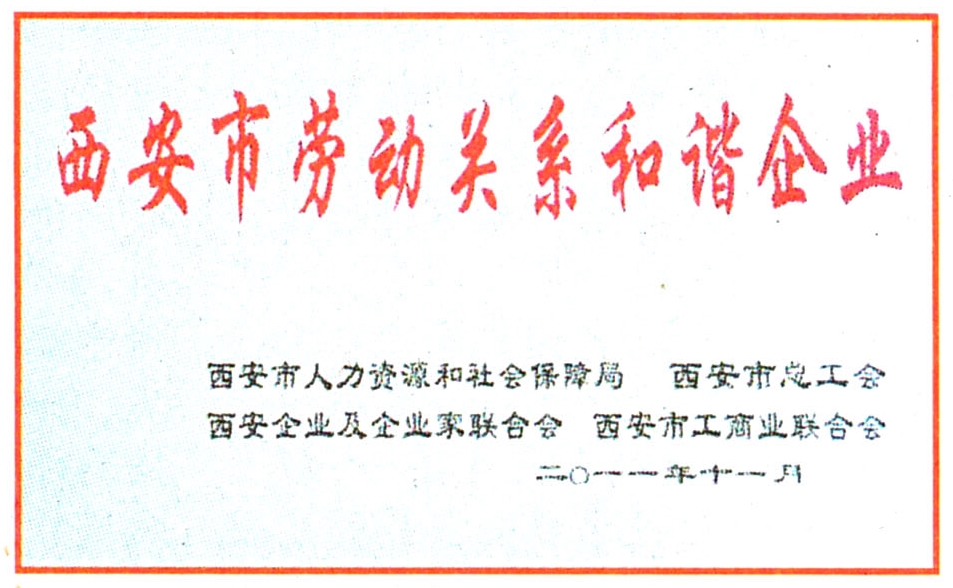 西安市劳动关系和谐企业
西安市人力资源和社会保障局 西安市总工会
西安企业及企业家联合会 西安市工商业联合会
二〇一一年十一月